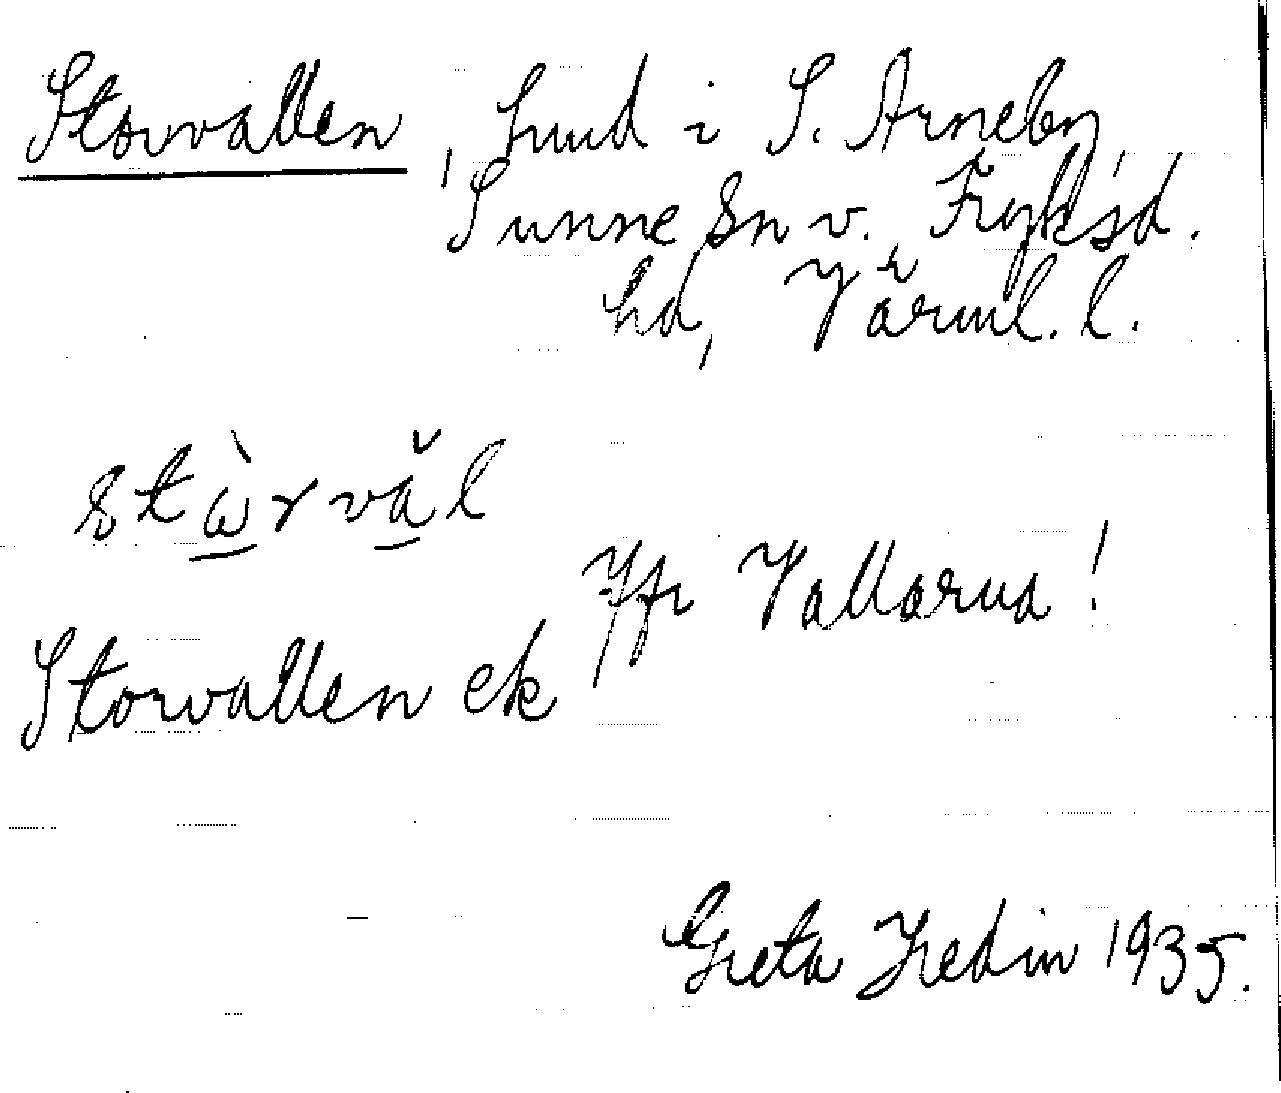 Storvallen, Lund i S. Arneby,
Sunne sn v. Fryksd.
hd, Värml. l.
stὼrvăl
Jfr Vallarna!
Storvallen ek
Greta Hedin 1935.